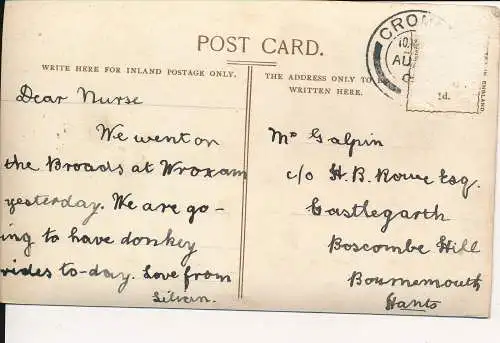 POST CARD.
WRITE HERE FOR INLAND POSTAGE ONLY.
Dear Nurse
We went on
the Broads at Wroxam
yesterday. We are go-
ing to have donkey
rides to-day. Love from
THE ADDRESS ONLY TO
WRITTEN HERE.
Mrs Galpin
c/o H. B. Rowe Esq.
Castlegarth
Boscombe Hill
Bournemouth
Hants
CROM
AU
½d.
IN ENGLAND